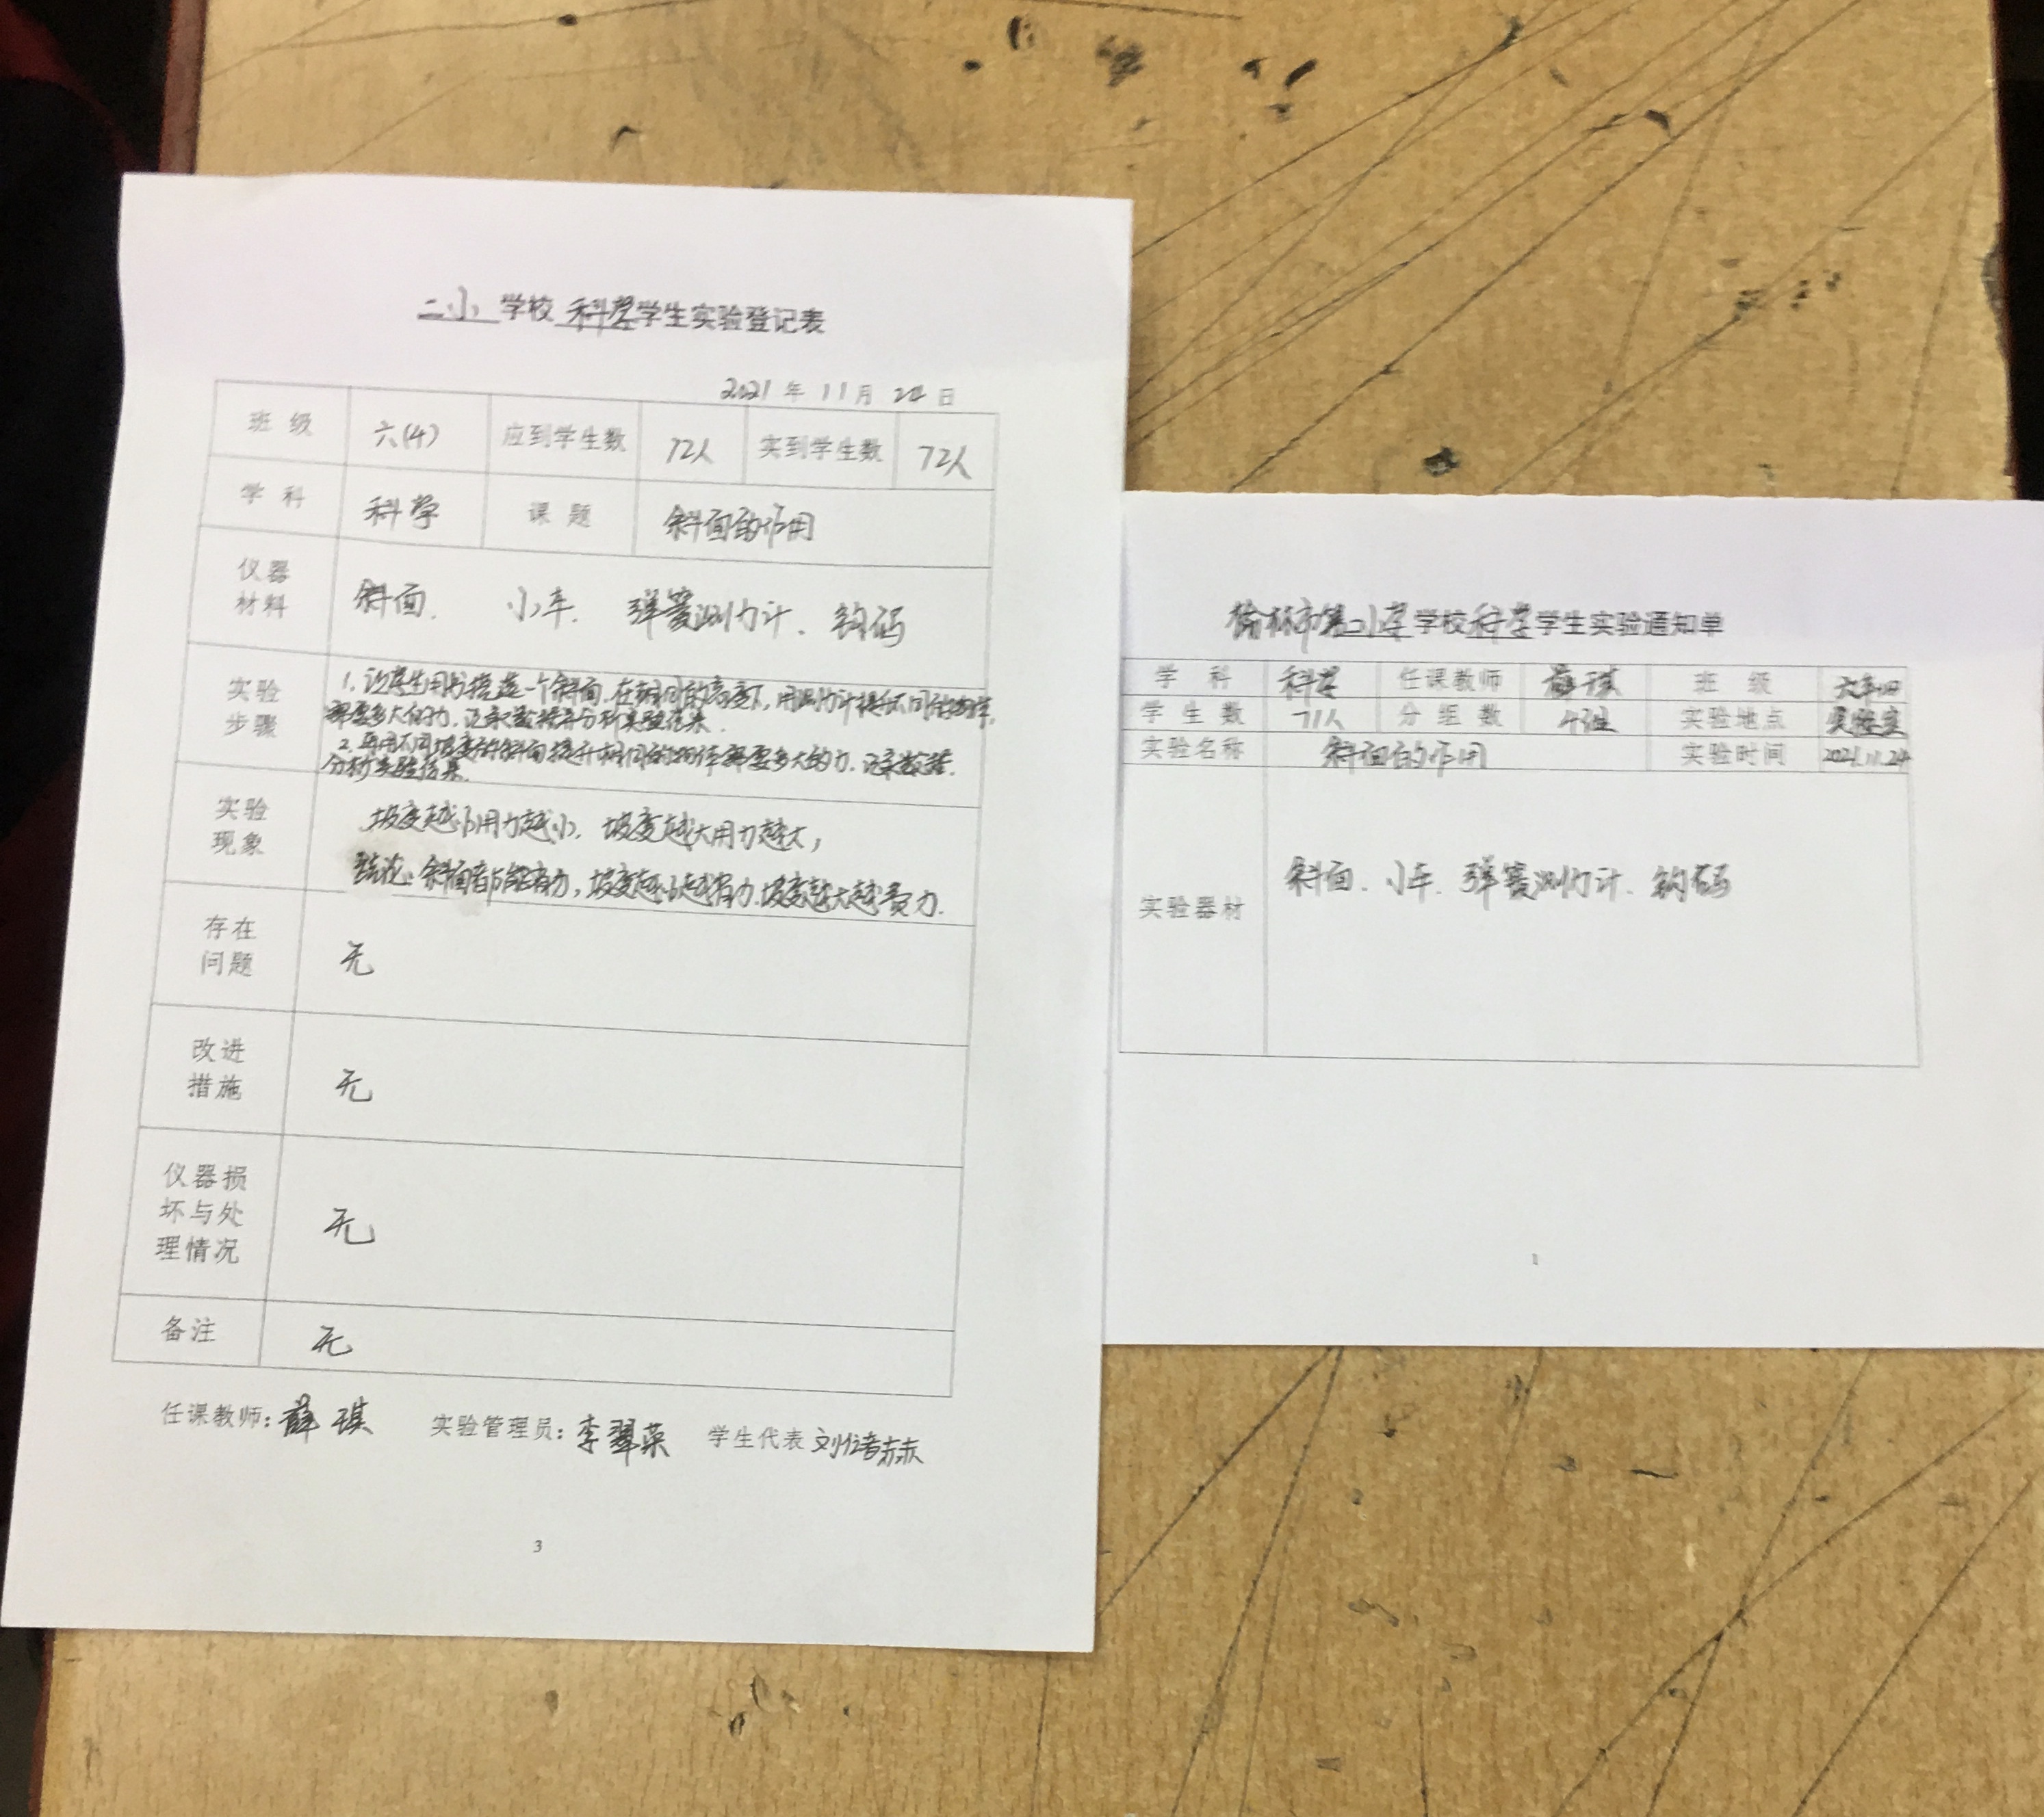 二小 学校 科学学生实验登记表
2021 年 11 月 24 日
班 级 六(4) 应到学生数 72人 实到学生数 72人
学 科 科学 课 题 斜面的作用
仪器
材料
斜面. 小车. 弹簧测力计. 钩码
实验
步骤
1. 让学生用书搭造一个斜面,在相同的高度下,用测力计提升不同的物体,
需要多大的力,记录数据并分析实验结果.
2. 再用不同坡度的斜面提升相同的物体需要多大的力.记录数据.
分析实验结果.
实验
现象
坡度越小用力越小, 坡度越大用力越大,
结论:斜面都能省力,坡度越小越省力.坡度越大越费力.
存在
问题
无
改进
措施
无
仪器损
坏与处
理情况
无
备注 无
任课教师:薛琪 实验管理员:李翠荣 学生代表
3
榆林市第二小学 学校科学学生实验通知单
学 科 科学 任课教师 薛琪 班 级 六年四
学 生 数 71人 分 组 数 4组 实验地点 实验室
实验名称 斜面的作用 实验时间 2021.11.24
实验器材 斜面. 小车. 弹簧测力计. 钩码
1